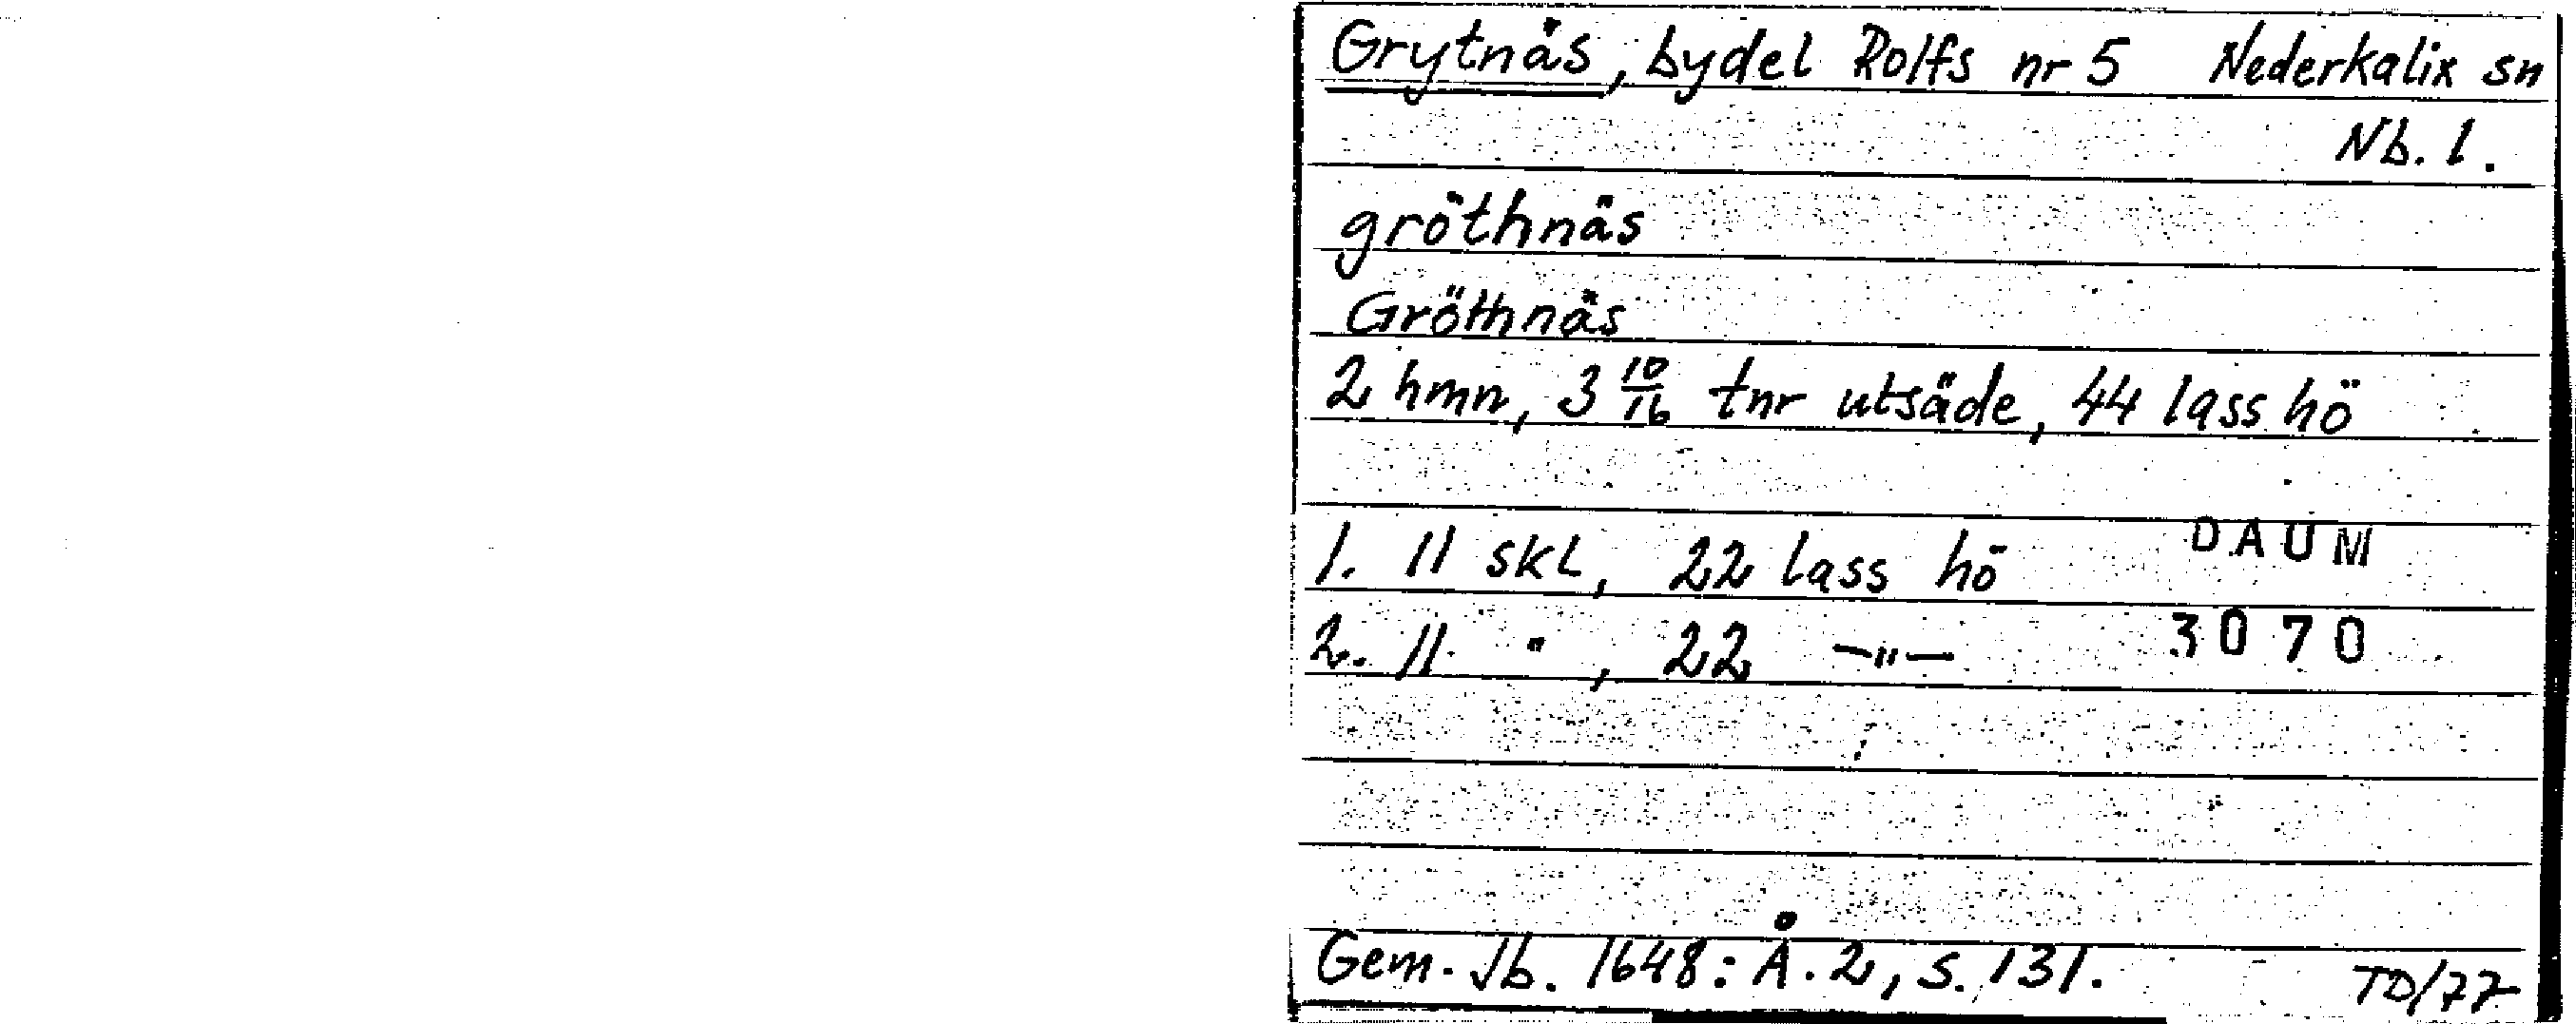 Grytnäs, bydel Rolfs nr 5 Nederkalix sn
Nb. l.
gröthnäs
Gröthnäs
2 hmn, 3 10/16 tnr utsäde, 44 lass hö
1. 11 skl, 22 lass hö DAUM
2. 11 " , 22 —"— 3070
Gem. Jb. 1648: Å. 2, s. 131. TD/77